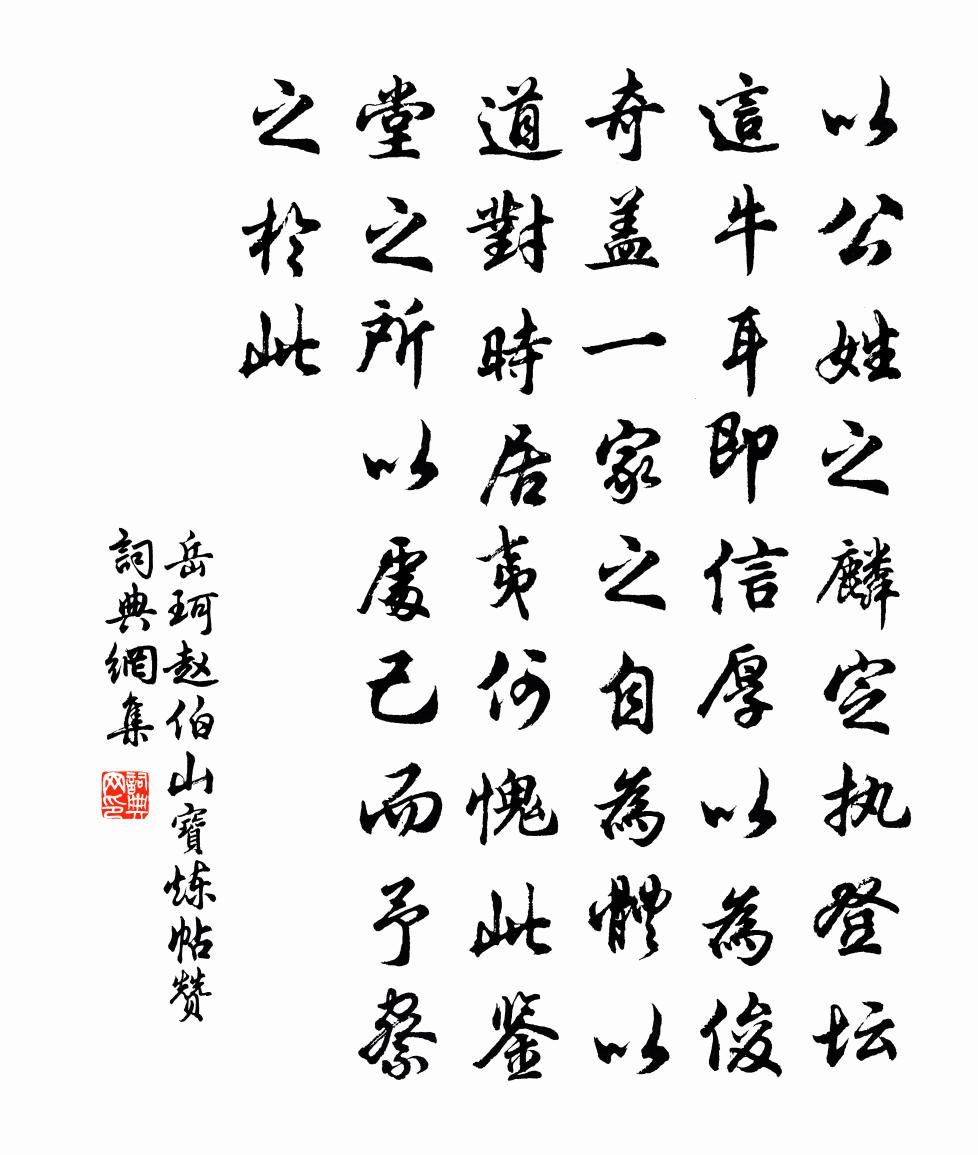 以公姓之麟定执登坛
這牛耳即信厚以為俊
奇盖一家之自為體以
道對時居夷何愧此鉴
堂之所以處己而予察
之於此
岳珂赵伯山寶炼帖赞
詞典網集
詞典网印